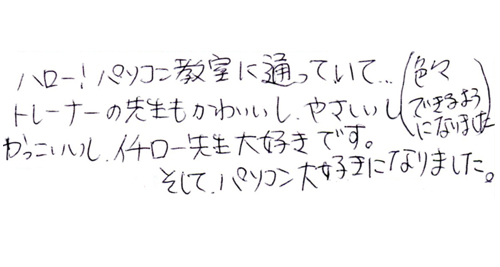 ハロー! パソコン教室に通っていて…(色々
できるよう
になりました
トレーナーの先生もかわいいし、やさしいし
かっこいいし、イチロー先生大好きです。
そして、パソコン大好きになりました。